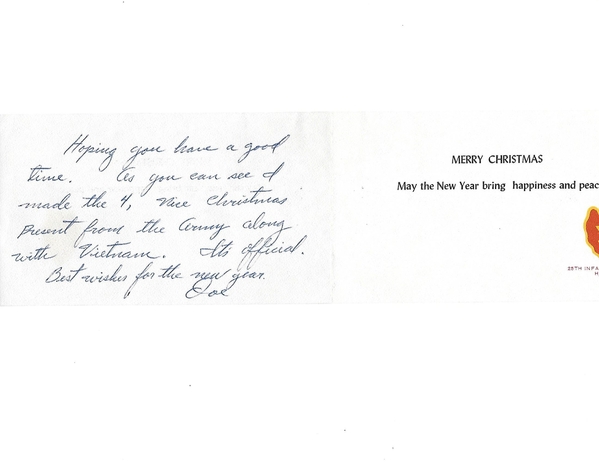 Hoping you have a good
time. As you can see I
made the 4, Nice Christmas
Present from the Army along
with Vietnam. Its official.
Best wishes for the new year.
Joe
MERRY CHRISTMAS
May the New Year bring happiness and peac
25TH INFA
H